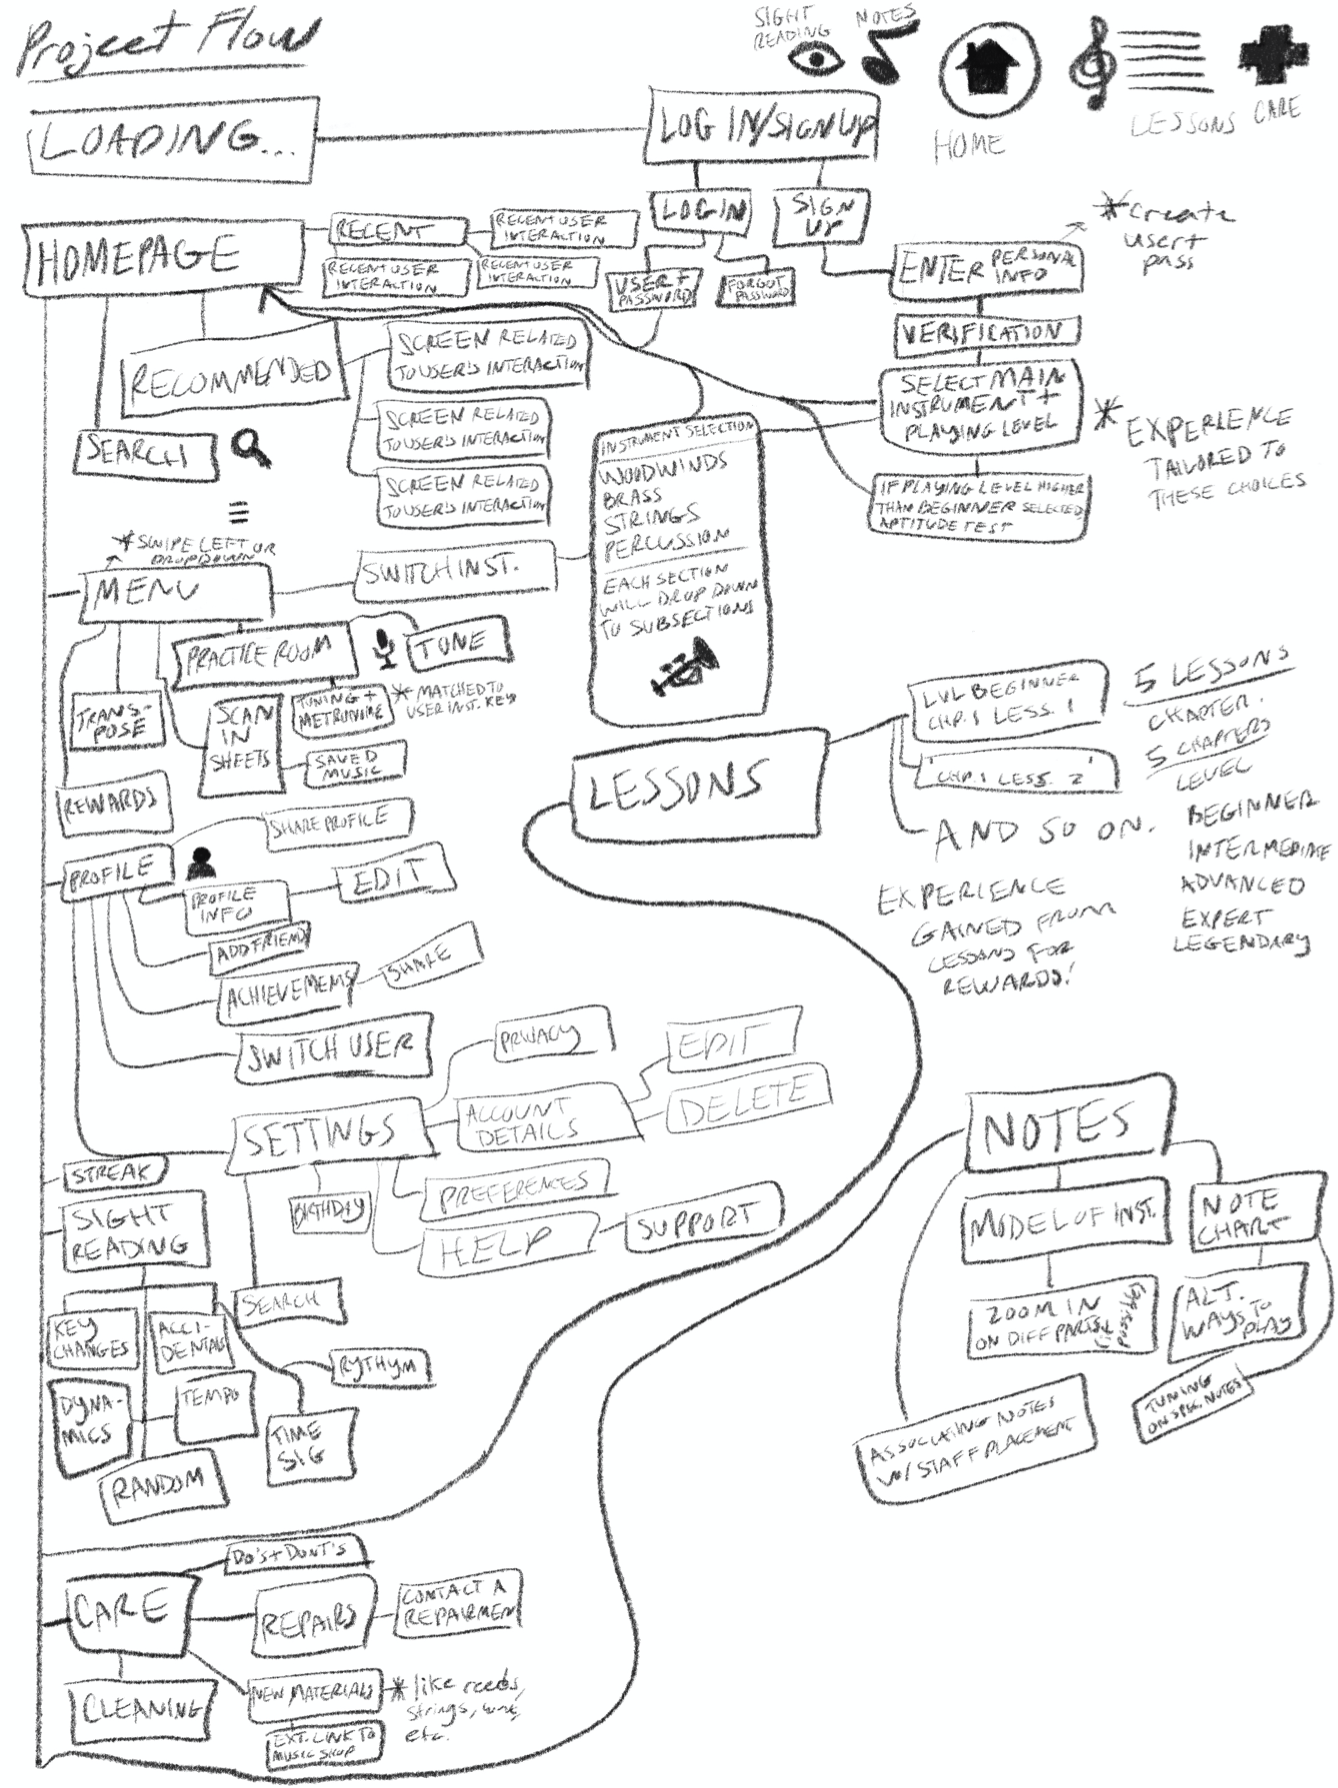 Project Flow
SIGHT
READING
NOTES
HOME
LESSONS
CARE
LOADING...
LOG IN/SIGN UP
LOGIN
SIGN
UP
USER +
PASSWORD
FORGOT
PASSWORD
ENTER PERSONAL
INFO
* create
user +
pass
VERIFICATION
SELECT MAIN
INSTRUMENT +
PLAYING LEVEL
* EXPERIENCE
TAILORED TO
THESE CHOICES
IF PLAYING LEVEL HIGHER
THAN BEGINNER SELECTED,
APTITUDE TEST
HOMEPAGE
RECENT
RECENT USER
INTERACTION
RECENT USER
INTERACTION
RECENT USER
INTERACTION
RECOMMENDED
SCREEN RELATED
TO USER'S INTERACTION
SCREEN RELATED
TO USER'S INTERACTION
SCREEN RELATED
TO USER'S INTERACTION
SEARCH
INSTRUMENT SELECTION
WOODWINDS
BRASS
STRINGS
PERCUSSION
EACH SECTION
WILL DROP DOWN
TO SUBSECTIONS
* SWIPE LEFT OR
DROPDOWN
MENU
SWITCH INST.
PRACTICE ROOM
TONE
TUNING +
METRONOME
* MATCHED TO
USER INST. KEY
TRANS-
POSE
SCAN
IN
SHEETS
SAVED
MUSIC
REWARDS
PROFILE
SHARE PROFILE
PROFILE
INFO
EDIT
ADD FRIEND
ACHIEVEMEMS
SHARE
SWITCH USER
SETTINGS
PRIVACY
ACCOUNT
DETAILS
EDIT
DELETE
PREFERENCES
BIRTHDAY
HELP
SUPPORT
SEARCH
LESSONS
LVL BEGINNER
CHP. 1 LESS. 1
' CHP. 1 LESS. 2 '
AND SO ON.
5 LESSONS
CHAPTER.
5 CHAPTERS
LEVEL
BEGINNER
INTERMEDIATE
ADVANCED
EXPERT
LEGENDARY
EXPERIENCE
GAINED FROM
LESSONS FOR
REWARDS!
STREAK
SIGHT
READING
KEY
CHANGES
ACCI-
DENTALS
DYNA-
MICS
TEMPO
RYTHYM
TIME
SIG
RANDOM
NOTES
MODEL OF INST.
NOTE
CHART
ZOOM IN
ON DIFF PARTS
ALT.
WAYS TO
PLAY
TUNING
ON SPEC. NOTES
ASSOCIATING NOTES
W/ STAFF PLACEMENT
CARE
DO'S + DONT'S
REPAIRS
CONTACT A
REPAIRMEN
CLEANING
NEW MATERIALS
* like reeds,
strings,
etc.
EXT. LINK TO
MUSIC SHOP